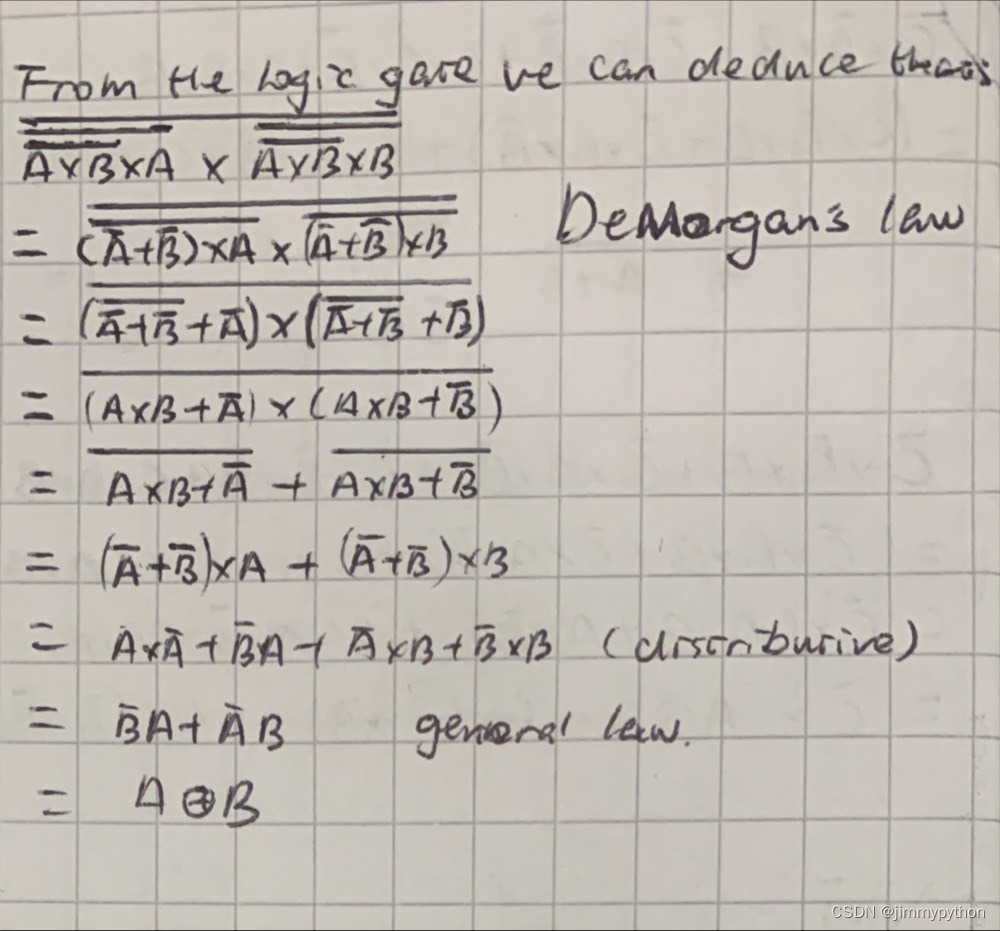 From the Logic gate we can deduce
$\overline{\overline{\overline{A \times B} \times A} \times \overline{\overline{A \times B} \times B}}$
= $\overline{\overline{(\bar{A}+\bar{B}) \times A} \times \overline{(\bar{A}+\bar{B}) \times B}}$ DeMorgan's law
= $\overline{(\overline{\bar{A}+\bar{B}}+\bar{A}) \times (\overline{\bar{A}+\bar{B}}+\bar{B})}$
= $\overline{(A \times B+\bar{A}) \times (A \times B+\bar{B})}$
= $\overline{A \times B+\bar{A}} + \overline{A \times B+\bar{B}}$
= $(\bar{A}+\bar{B}) \times A + (\bar{A}+\bar{B}) \times B$
= $A \times \bar{A} + \bar{B}A + \bar{A} \times B + \bar{B} \times B$ (discriburive)
= $\bar{B}A + \bar{A}B$ general law.
= $A \oplus B$
CSDN @jimmypython